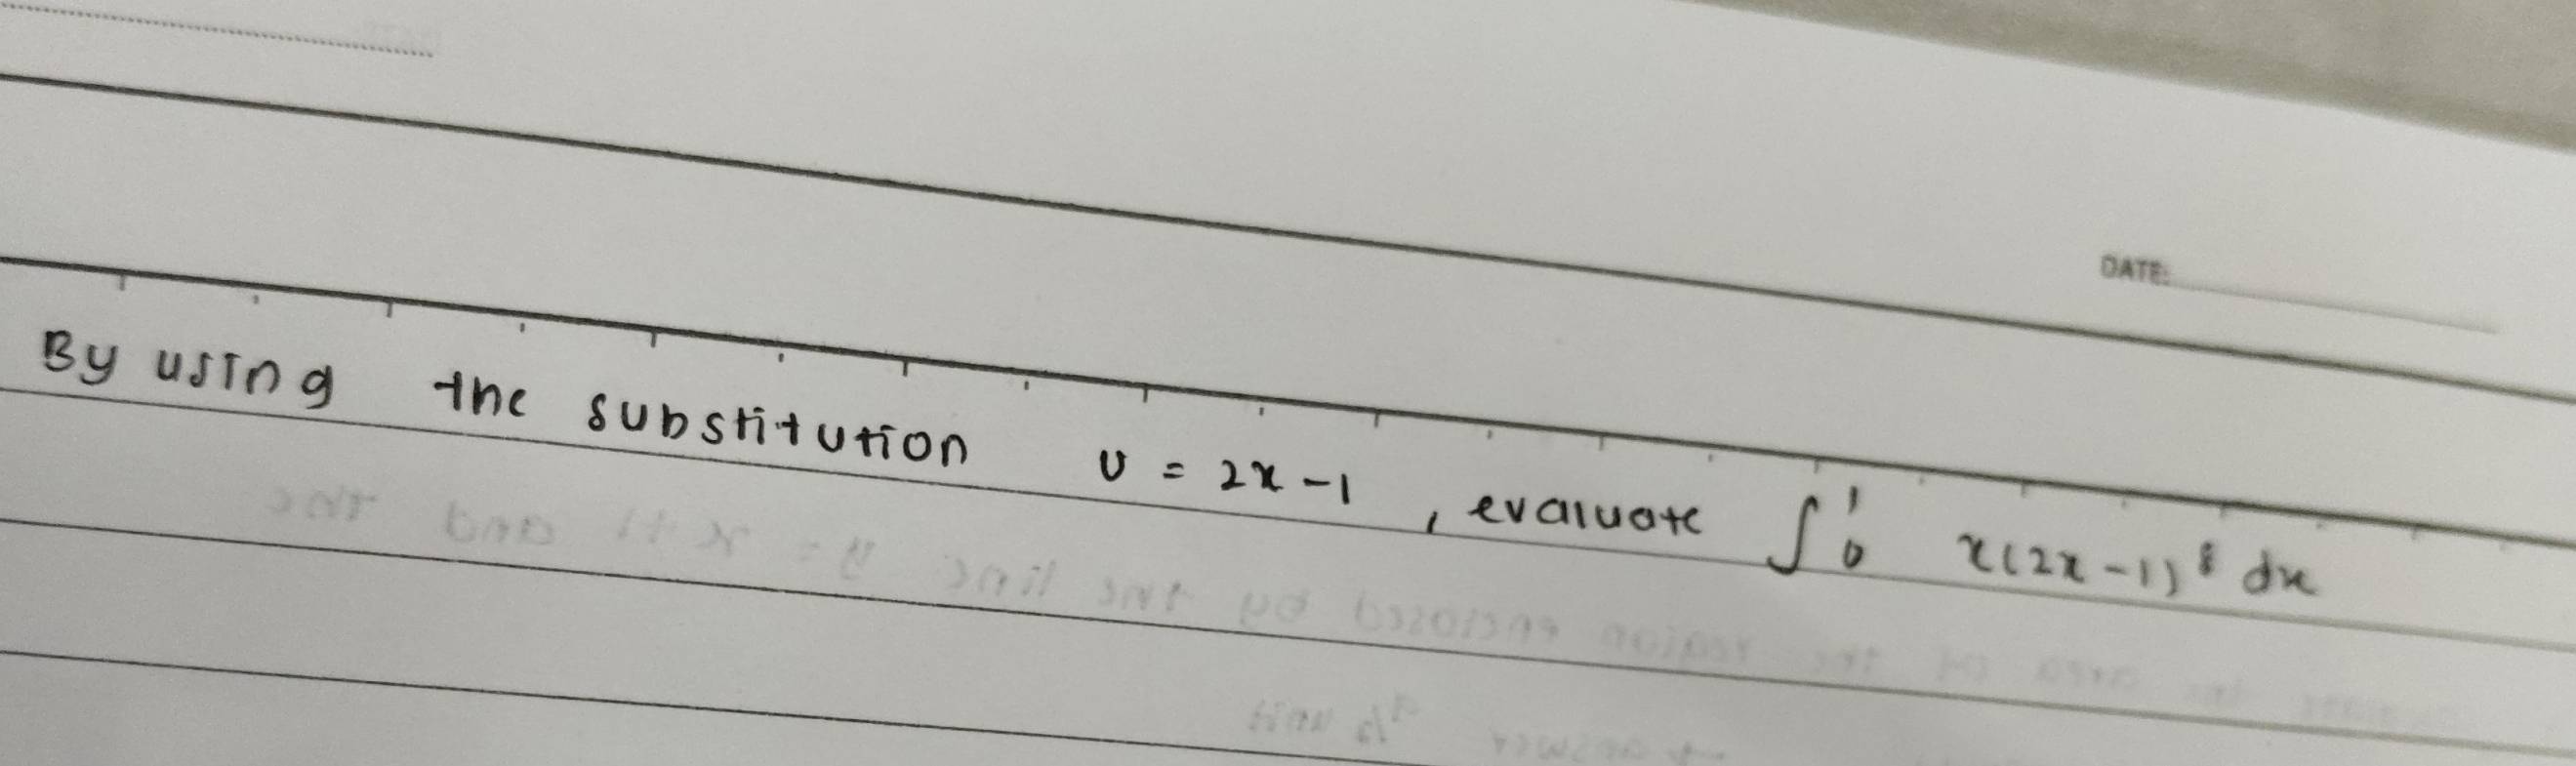 DATE:
By using the substitution u = 2x - 1, evaluate ∫₀¹ x(2x-1)⁸ dx